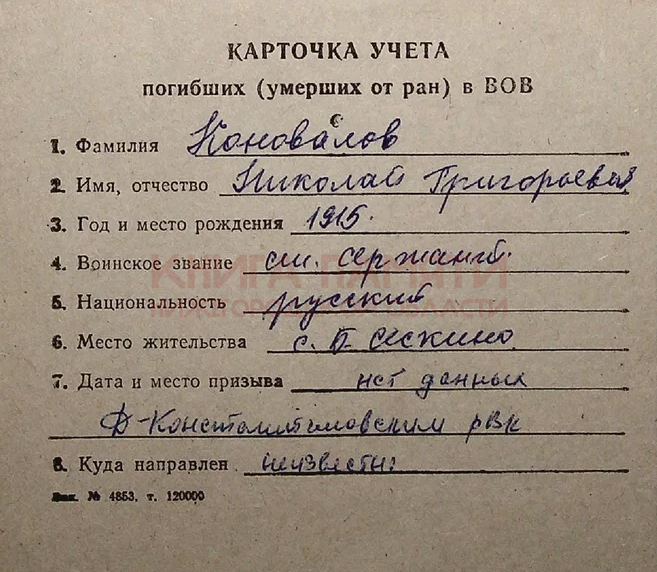 КАРТОЧКА УЧЕТА
погибших (умерших от ран) в ВОВ
1. Фамилия Коновалов
2. Имя, отчество Николай Григорьевич
3. Год и место рождения 1915.
4. Воинское звание ст. сержант.
КНИГА ПАМЯТИ
5. Национальность русский
НИЖЕГОРОДСКОЙ ОБЛАСТИ
6. Место жительства с. Б Сескино
7. Дата и место призыва нет данных
Д-Константиновским рвк
8. Куда направлен неизвестно
Зак. № 4853, т. 120000